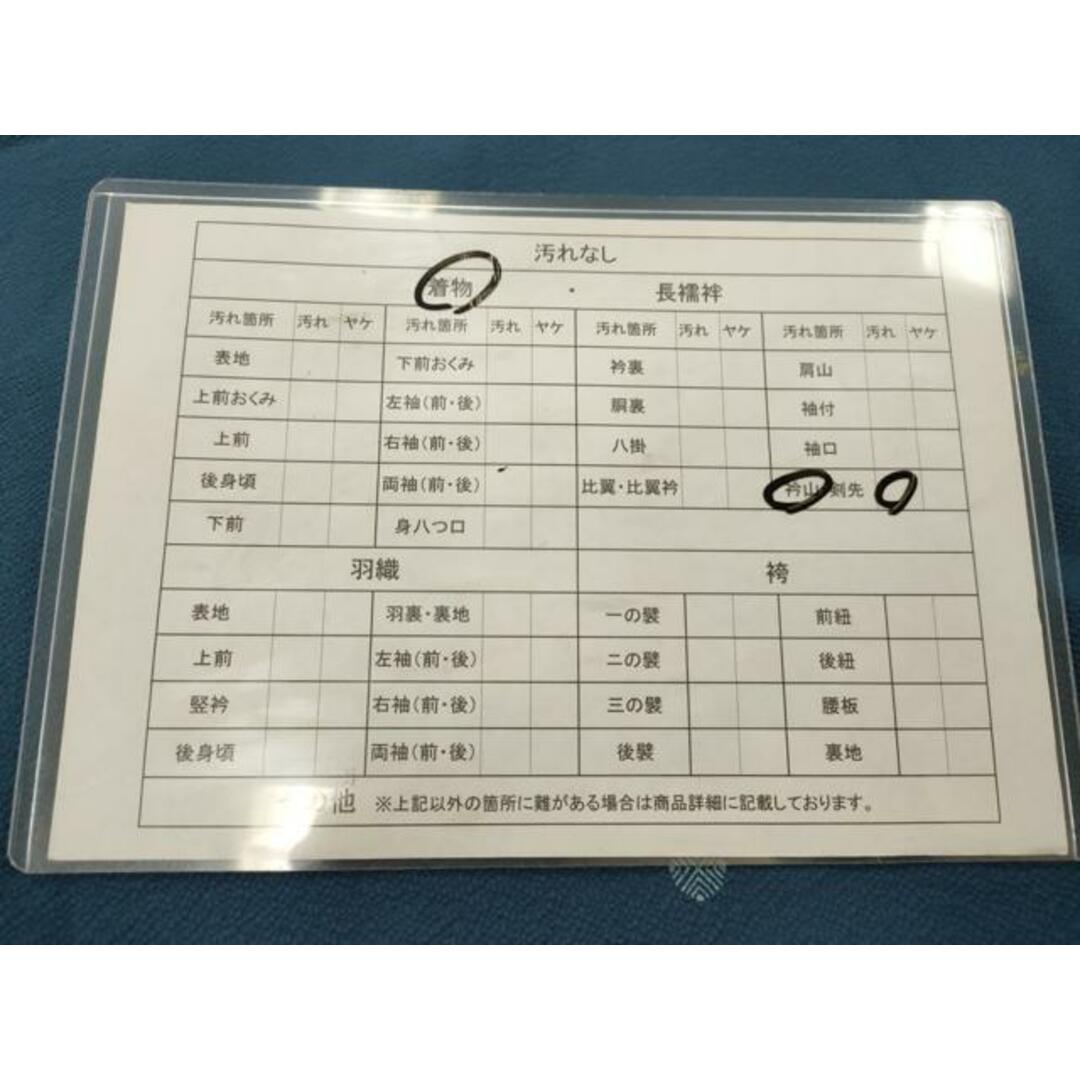 汚れなし
着物 ・ 長襦袢
汚れ箇所 汚れ ヤケ 汚れ箇所 汚れ ヤケ 汚れ箇所 汚れ ヤケ 汚れ箇所 汚れ ヤケ
表地 下前おくみ 衿裏 肩山
上前おくみ 左袖(前・後) 胴裏 袖付
上前 右袖(前・後) 八掛 袖口
後身頃 両袖(前・後) 比翼・比翼衿 衿山・剣先
下前 身八つ口
羽織 袴
表地 羽裏・裏地 一の襞 前紐
上前 左袖(前・後) 二の襞 後紐
竪衿 右袖(前・後) 三の襞 腰板
後身頃 両袖(前・後) 後襞 裏地
の他 ※上記以外の箇所に難がある場合は商品詳細に記載しております。